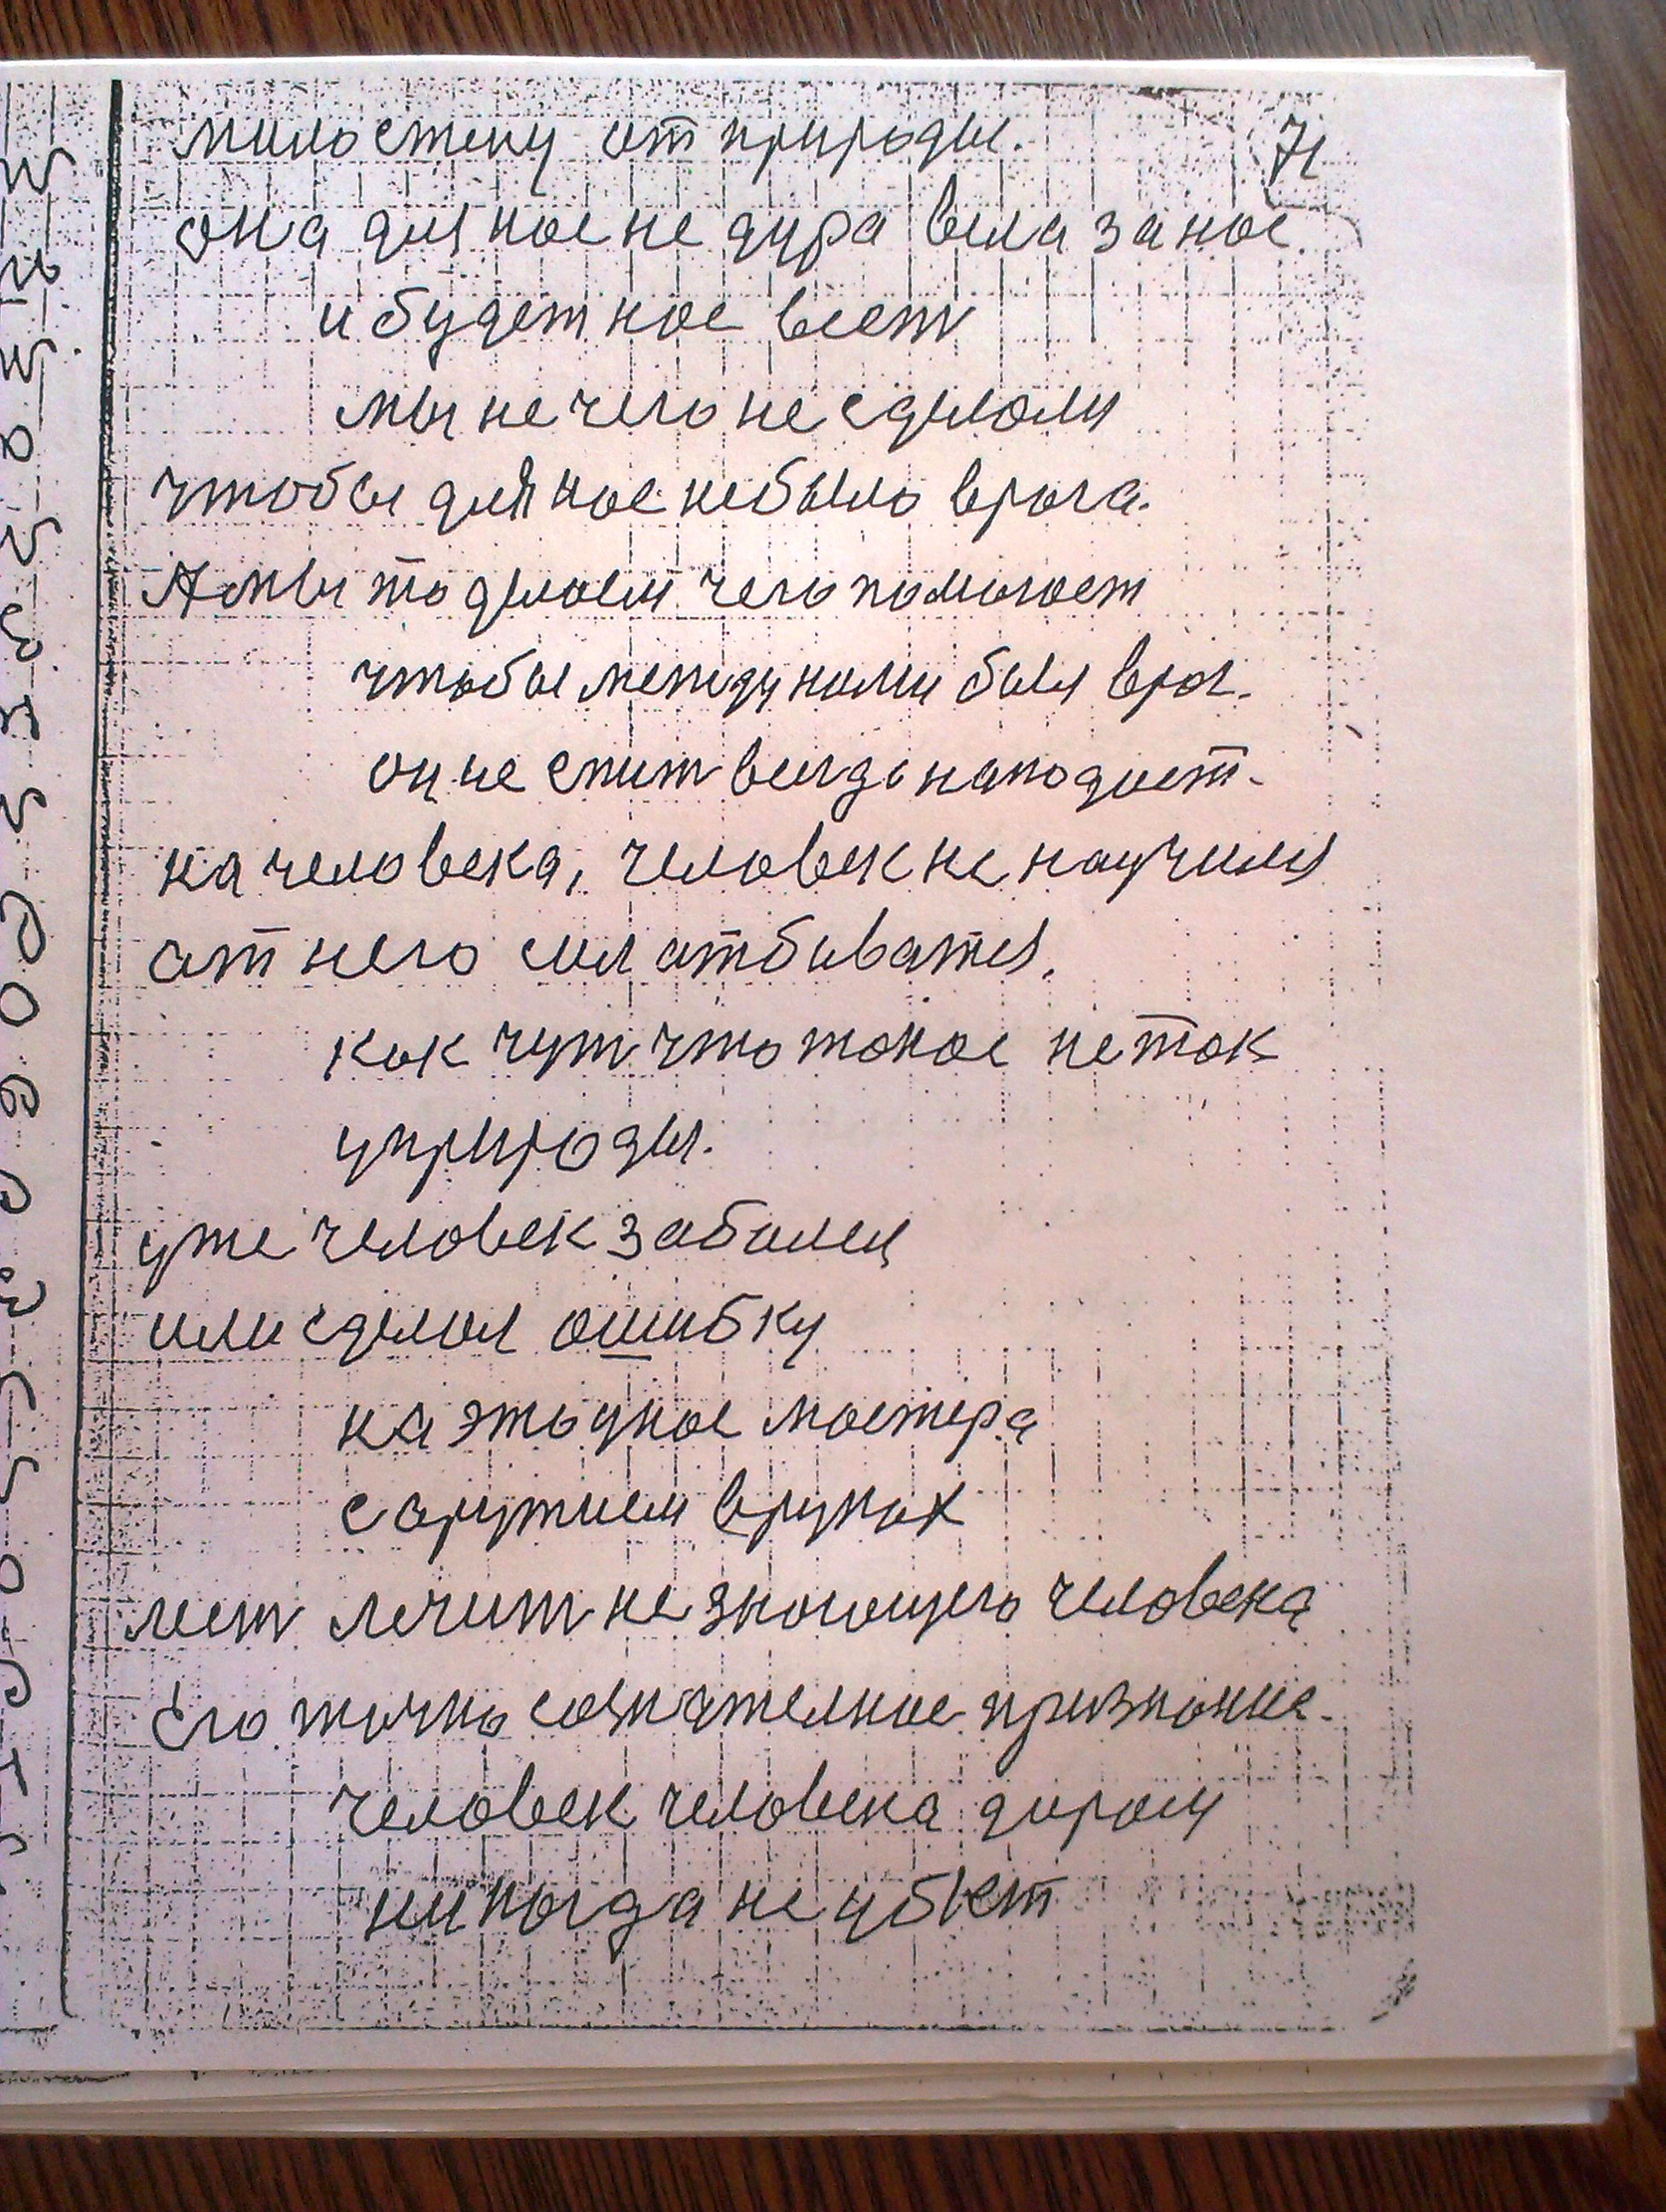 милостену от природы. 71
она для нас не дура вела за нас
и будет нас вест
мы не чего не сделали
чтобы для нас небыло врага.
А мы то делаем чего помогает
чтобы между нами был враг.
он не спит всегда нападает.
на человека, человек не научился
от него сил атбиватся.
как чут что токое не так
уприроды.
уже человек заболел
или сделал ошибку
на это унас мастера
с аружием вруках
лест лечит не знающего человека
Его точно сознателное признание.
человек человека даром
никогда не убъет